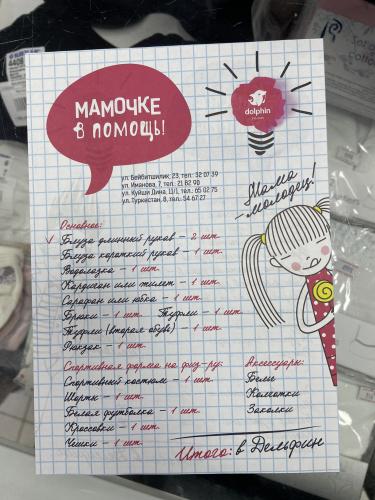 МАМОЧКЕ
В ПОМОЩЬ!
dolphin
ул. Бейбитшилик, 23, тел.: 32 07 39
ул. Иманова, 7, тел.: 21 82 90
ул. Куйши Дина, 11/1, тел.: 65 02 75
ул. Туркестан, 8, тел.: 54 67 27
Мама
-молодец!
Основное:
Блуза длинный рукав - 2 шт.
Блуза короткий рукав - 1 шт.
Водолазка - 1 шт.
Кардиган или жилет - 1 шт.
Сарафан или юбка - 1 шт.
Брюки - 1 шт. Туфли - 1 шт.
Туфли (вторая обувь) - 1 шт.
Рюкзак - 1 шт.
Спортивная форма на физ-ру:
Спортивный костюм - 1 шт.
Шорты - 1 шт.
Белая футболка - 1 шт.
Кроссовки - 1 шт.
Чешки - 1 шт.
Аксессуары:
Белье
Колготки
Заколки
Итого: в Дельфин